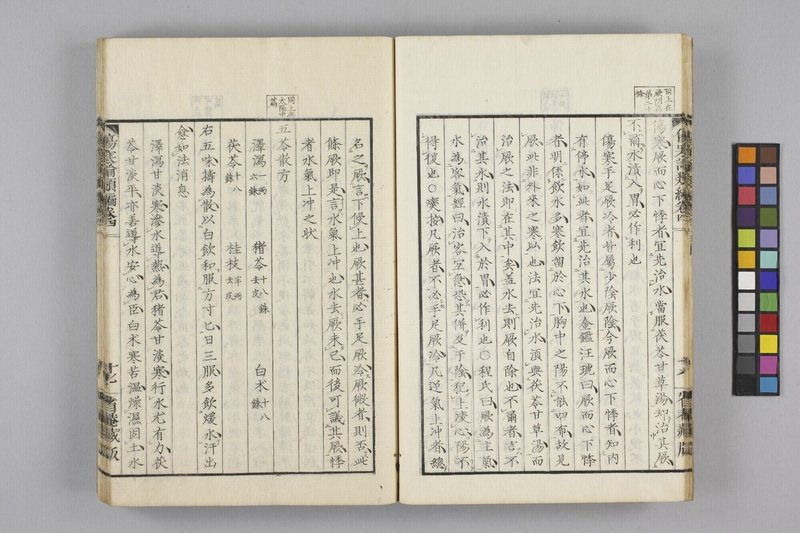 傷寒厥而心下悸者宜先治水當服茯苓甘草湯却治其厥
不爾水漬入胃必作利也
傷寒手足厥冷者皆屬少陰厥陰今厥而心下悸者知內
有停水如此者宜先治其水也金鑑汪琥曰厥而心下悸
者明係飲水多寒飲留於心下胸中之陽不能四布故見
厥此非外來之寒比也法宜先治水須與茯苓甘草湯而
治厥之法即在其中矣蓋水去則厥自除也不爾者言不
治其水則水漬下入於胃必作利也〇程氏曰厥為主氣
水為客氣經曰治客宜急恐其併及于陰犯上凌心陽不
得復也〇寒按凡厥者不必手足厥冷凡逆氣上冲者總
名之厥言下使上也厥甚者必手足厥冷厥微者則否此
條厥即是言水氣上冲也水去厥未已而後可議其厥悸
者水氣上冲之狀
五苓散方
澤瀉 一兩六銖 猪苓 十八銖去皮 白朮 十八銖
茯苓 十八銖 桂枝 半兩去皮
右五味擣為散以白飲和服方寸匕日三服多飲煖水汗出
愈如法消息
澤瀉甘淡寒滲水導熱為君猪苓甘淡寒行水尤有力茯
苓甘淡平亦善導水安心為臣白朮寒苦溫燥濕固土水
傷寒論類編卷四
省菴藏版